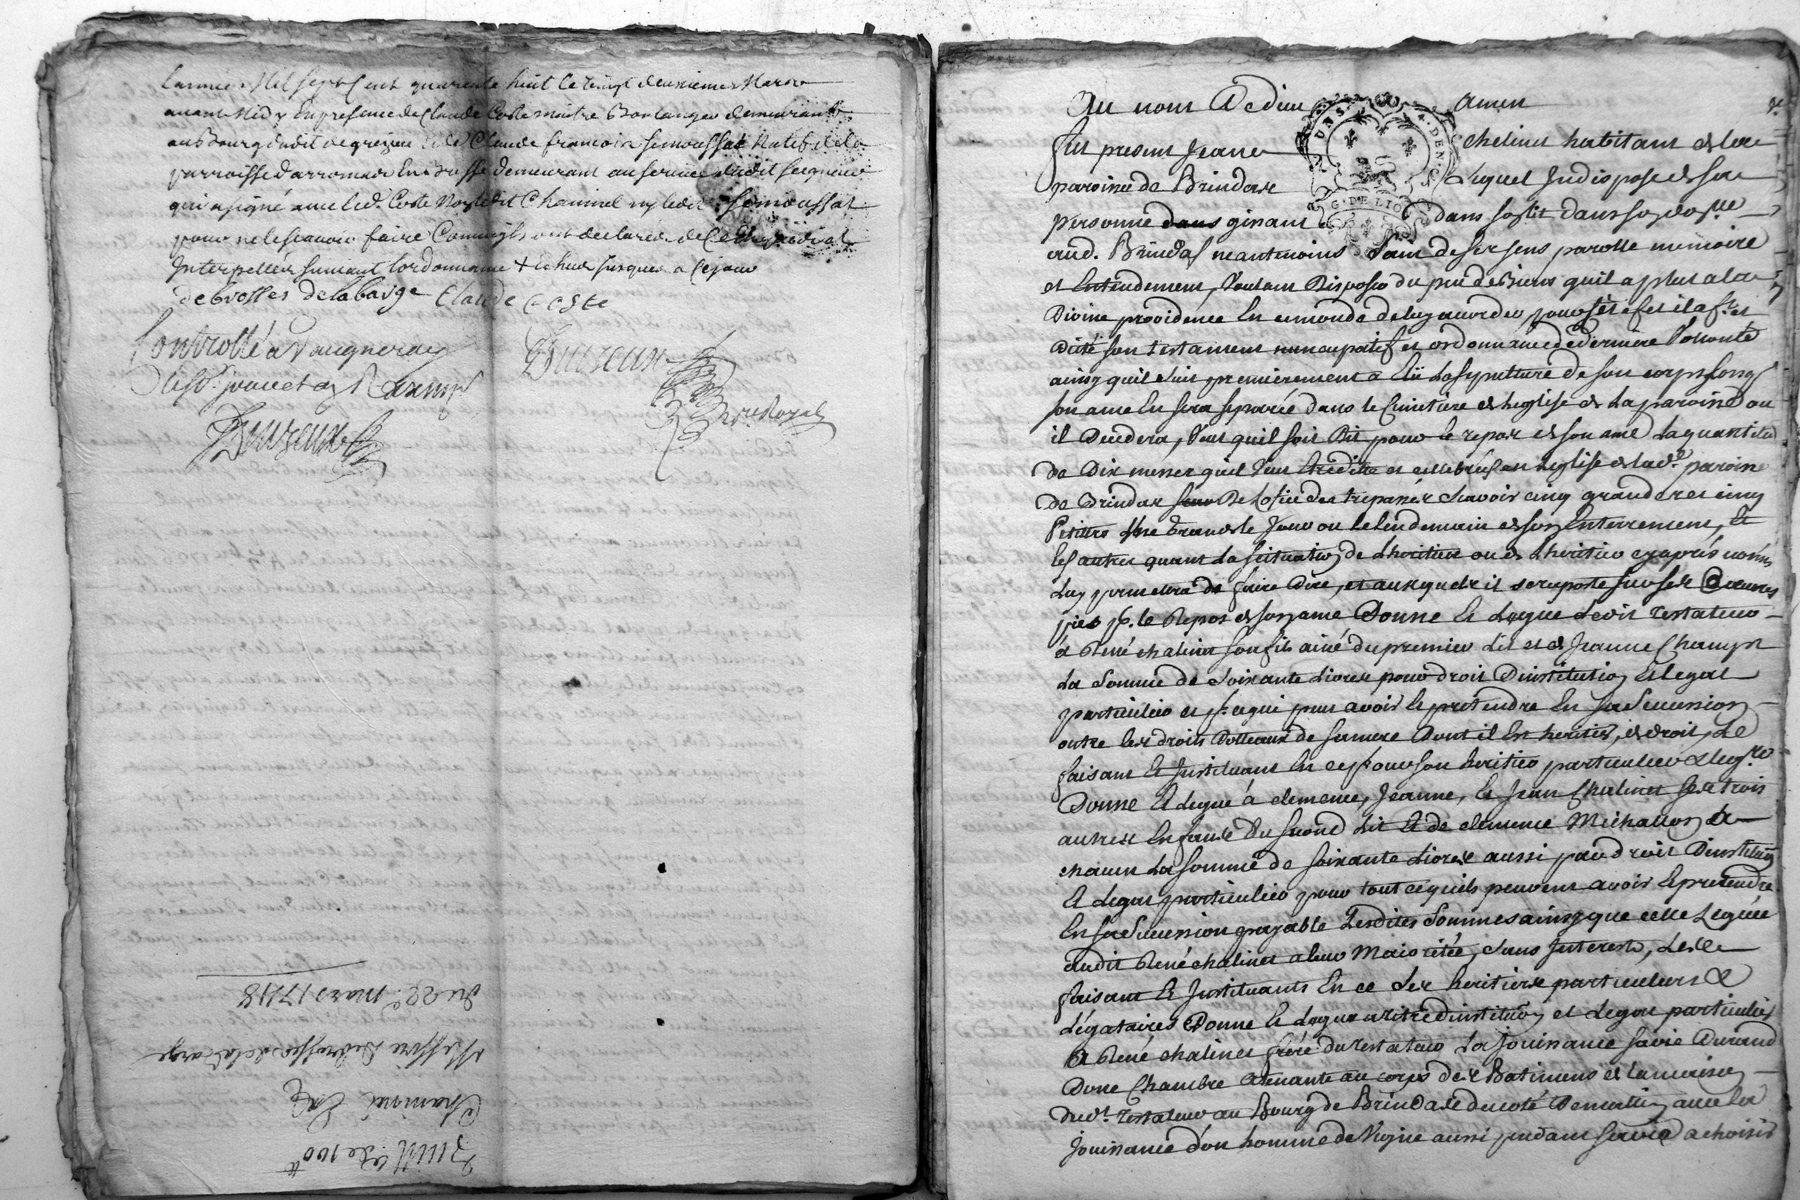 Lannee Mil sept Cent quarente huit Le vingt deuxieme Mars
avant Midy En presence de Claude Coste maitre Boulanger demeurant
au Bourg dudit Segreigne et de Claude francois Simoussat Natif de la
parroisse darromas En Bresse demeurant au service dudit seigneur
qui a signé avec led. Coste Non ledit Chaminel ny ledit Simoussat
pour ne le scavoir faire Comme ils ont declaré de Ce
Interpellés suivant lordonnance + echus jusques a Ce jour
debrosses delabarge Claude Coste
Controllé a Vaugneray
Le sd. jour et an Reçu
Durieux
Durieux
No.re Royal
Du 22e. mars 1748
Messire debrosses de la barge
Chaminel
quitt.ce de 100 tt
Au nom De dieu amen
fut present Jean chalinet habitant de la
paroisse de Brindas Lequel Indisposé de sa
personne dans gisant dans son lit dans son domicille
aud. Brindas neantmoins sain de ses sens parolle memoire
et Entendement, Voulant Disposer du peu de Biens quil a plut a la
Divine providence En ce monde de luy accorder pour ses et il a fait et
Dicté son testament nuncupatif et ordonnance de derniere Volonté
ainsy quil suit premierement a Elû La sepulture de son corps lorsq
son ame En sera separée dans le Cimetiere de Leglise de La paroisse ou
il Decedera, Veut quil soit Dit pour le repos de son ame La quantité
de Dix messes quil Veut Etre dittes et cellebrées en Leglise de lad.e paroisse
de Brindas De lofice des trepassés scavoir cinq grandes et cinq
Petittes Une Grande le Jour ou le lendemain de son Enterrement, Et
les autres quant La scituation de Lheritier ou de Lheritiere cy après només
Luy permettra de faire Dire, et auxquels il se raporte sur ses Oeuvres
pies pr. le Repos de son ame Donne Et Legue Ledit testateur
à René chalinet son fils ainé du premier Lit et de Jeanne Champt
La Somme de Soixante Livres pour droit Dinstitution Et legat
particulier et pr. ce qui peut avoir Et pretendre En sa Succession
outre les droits Dotteaux de sa mere Dont il Est heritier, de droit, Le
faisant Et Instituant En ce pour son heritier particulier Et leg.re
Donne Et Legue à clemence, Jeanne, Et Jean Chalinet ses trois
autres Enfants Du second Lit Et de clemence Michallon, Et
chacun La Somme de Soixante Livres aussi pour droit Dinstit͞on
Et Legat particulier pour tout ce quils peuvent avoir Et pretendre
En sa Succession payable Lesdites Sommes ainsy que celle Leguée
audit René chalinet a leur Majorité, Sans Interest, Les
faisant Et Instituants En ce Ses heritiers particuliers Et
Légataires Donne Et Legue a titre dinstitu͞on et Legat particulier
A René chalinet frere du testateur La Jouissance sa vie Durant
Dune Chambre attenante au corps des Batimens de la maison
dud.t testateur au Bourg de Brindas du coté De matin, avec la
Jouissance dun homme de Vigne aussi pendant sa vie a choisir